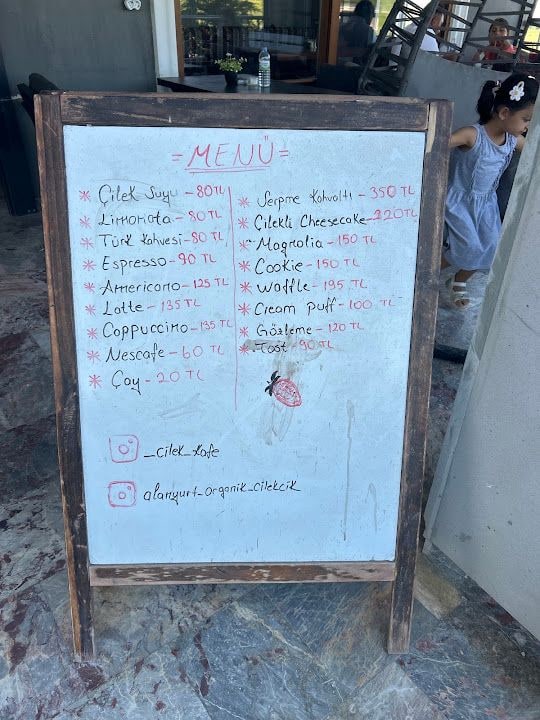 = MENÜ =
* Çilek Suyu - 80 TL
* Limonata - 80 TL
* Türk Kahvesi - 80 TL
* Espresso - 90 TL
* Americano - 125 TL
* Latte - 135 TL
* Cappuccino - 135 TL
* Nescafe - 60 TL
* Çay - 20 TL
* Serpme Kahvaltı - 350 TL
* Çilekli Cheesecake - 220 TL
* Magnolia - 150 TL
* Cookie - 150 TL
* Waffle - 195 TL
* Cream Puff - 100 TL
* Gözleme - 120 TL
* Tost - 90 TL
_cilek_kafe
alanyurt_organik_cilekcik